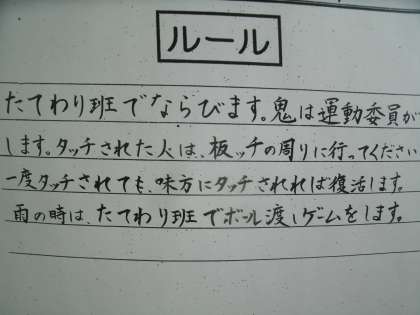 ルール
たてわり班でならびます。鬼は運動委員が
します。タッチされた人は、板ッチの周りに行ってください
一度タッチされても、味方にタッチされれば復活します。
雨の時は、たてわり班でボール渡しゲームをします。